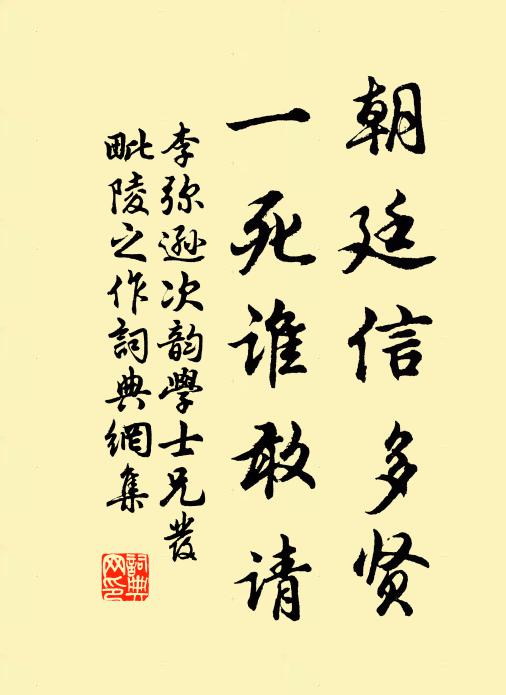 朝廷信多贤
一死谁敢请
李弥逊次韵學士兄發
毗陵之作詞典網集
詞典
网印